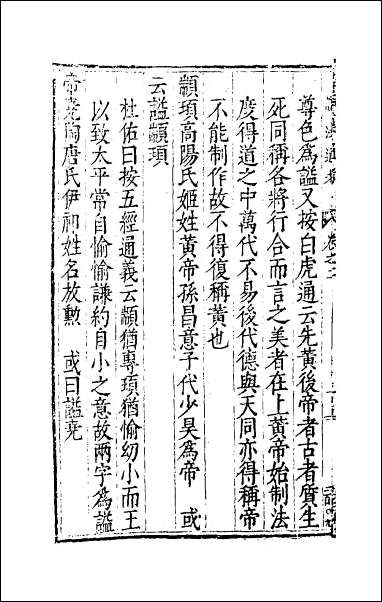 尊色為謚又按白虎通云先黃後帝者古者質生
死同稱各將行合而言之美者在上黃帝始制法
度得道之中萬代不易後代德與天同亦得稱帝
不能制作故不得復稱黃也
顓頊高陽氏姬姓黃帝孫昌意子代少昊為帝 或
云謚顓頊
杜佑曰按五經通義云顓猶專頊猶愉幼小而王
以致太平常自愉愉謙約自小之意故兩字為謚
帝堯陶唐氏伊祁姓名放勲 或曰謚堯